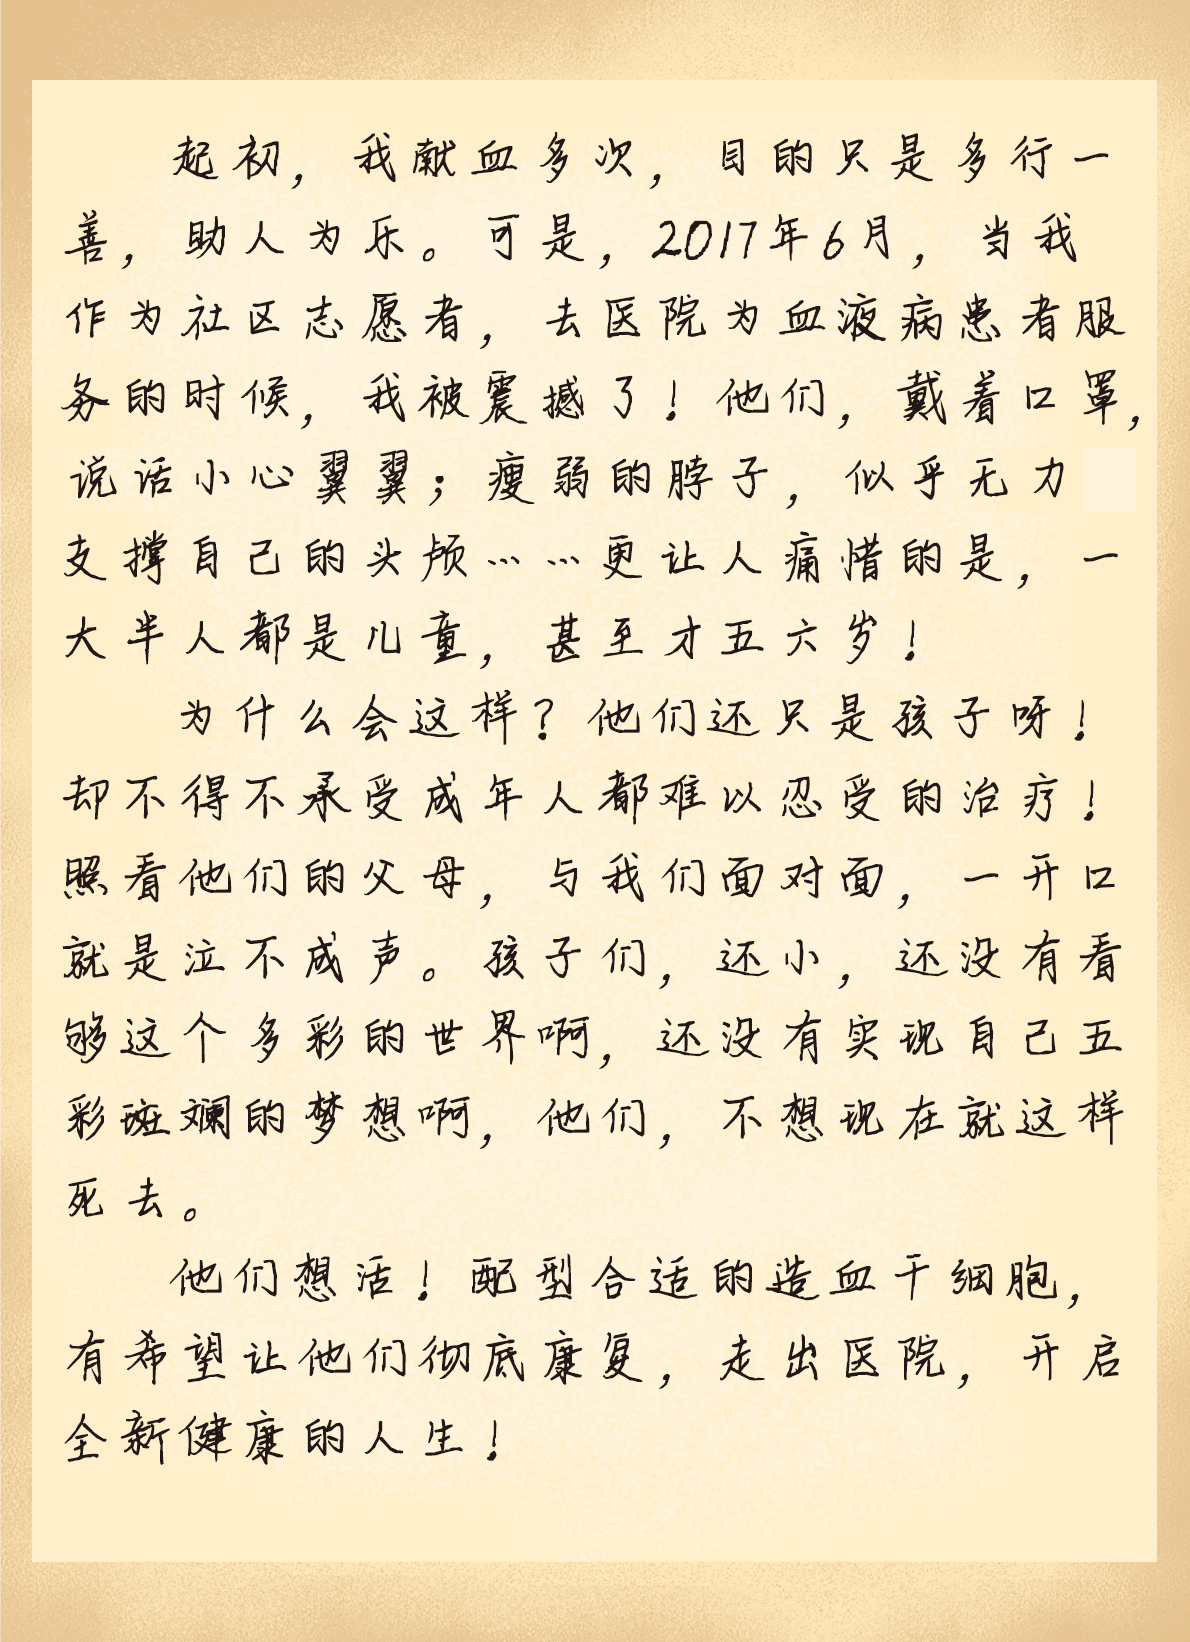 起初，我献血多次，目的只是多行一
善，助人为乐。可是，2017年6月，当我
作为社区志愿者，去医院为血液病患者服
务的时候，我被震撼了！他们，戴着口罩，
说话小心翼翼；瘦弱的脖子，似乎无力
支撑自己的头颅……更让人痛惜的是，一
大半人都是儿童，甚至才五六岁！
为什么会这样？他们还只是孩子呀！
却不得不承受成年人都难以忍受的治疗！
照看他们的父母，与我们面对面，一开口
就是泣不成声。孩子们，还小，还没有看
够这个多彩的世界啊，还没有实现自己五
彩斑斓的梦想啊，他们，不想现在就这样
死去。
他们想活！配型合适的造血干细胞，
有希望让他们彻底康复，走出医院，开启
全新健康的人生！